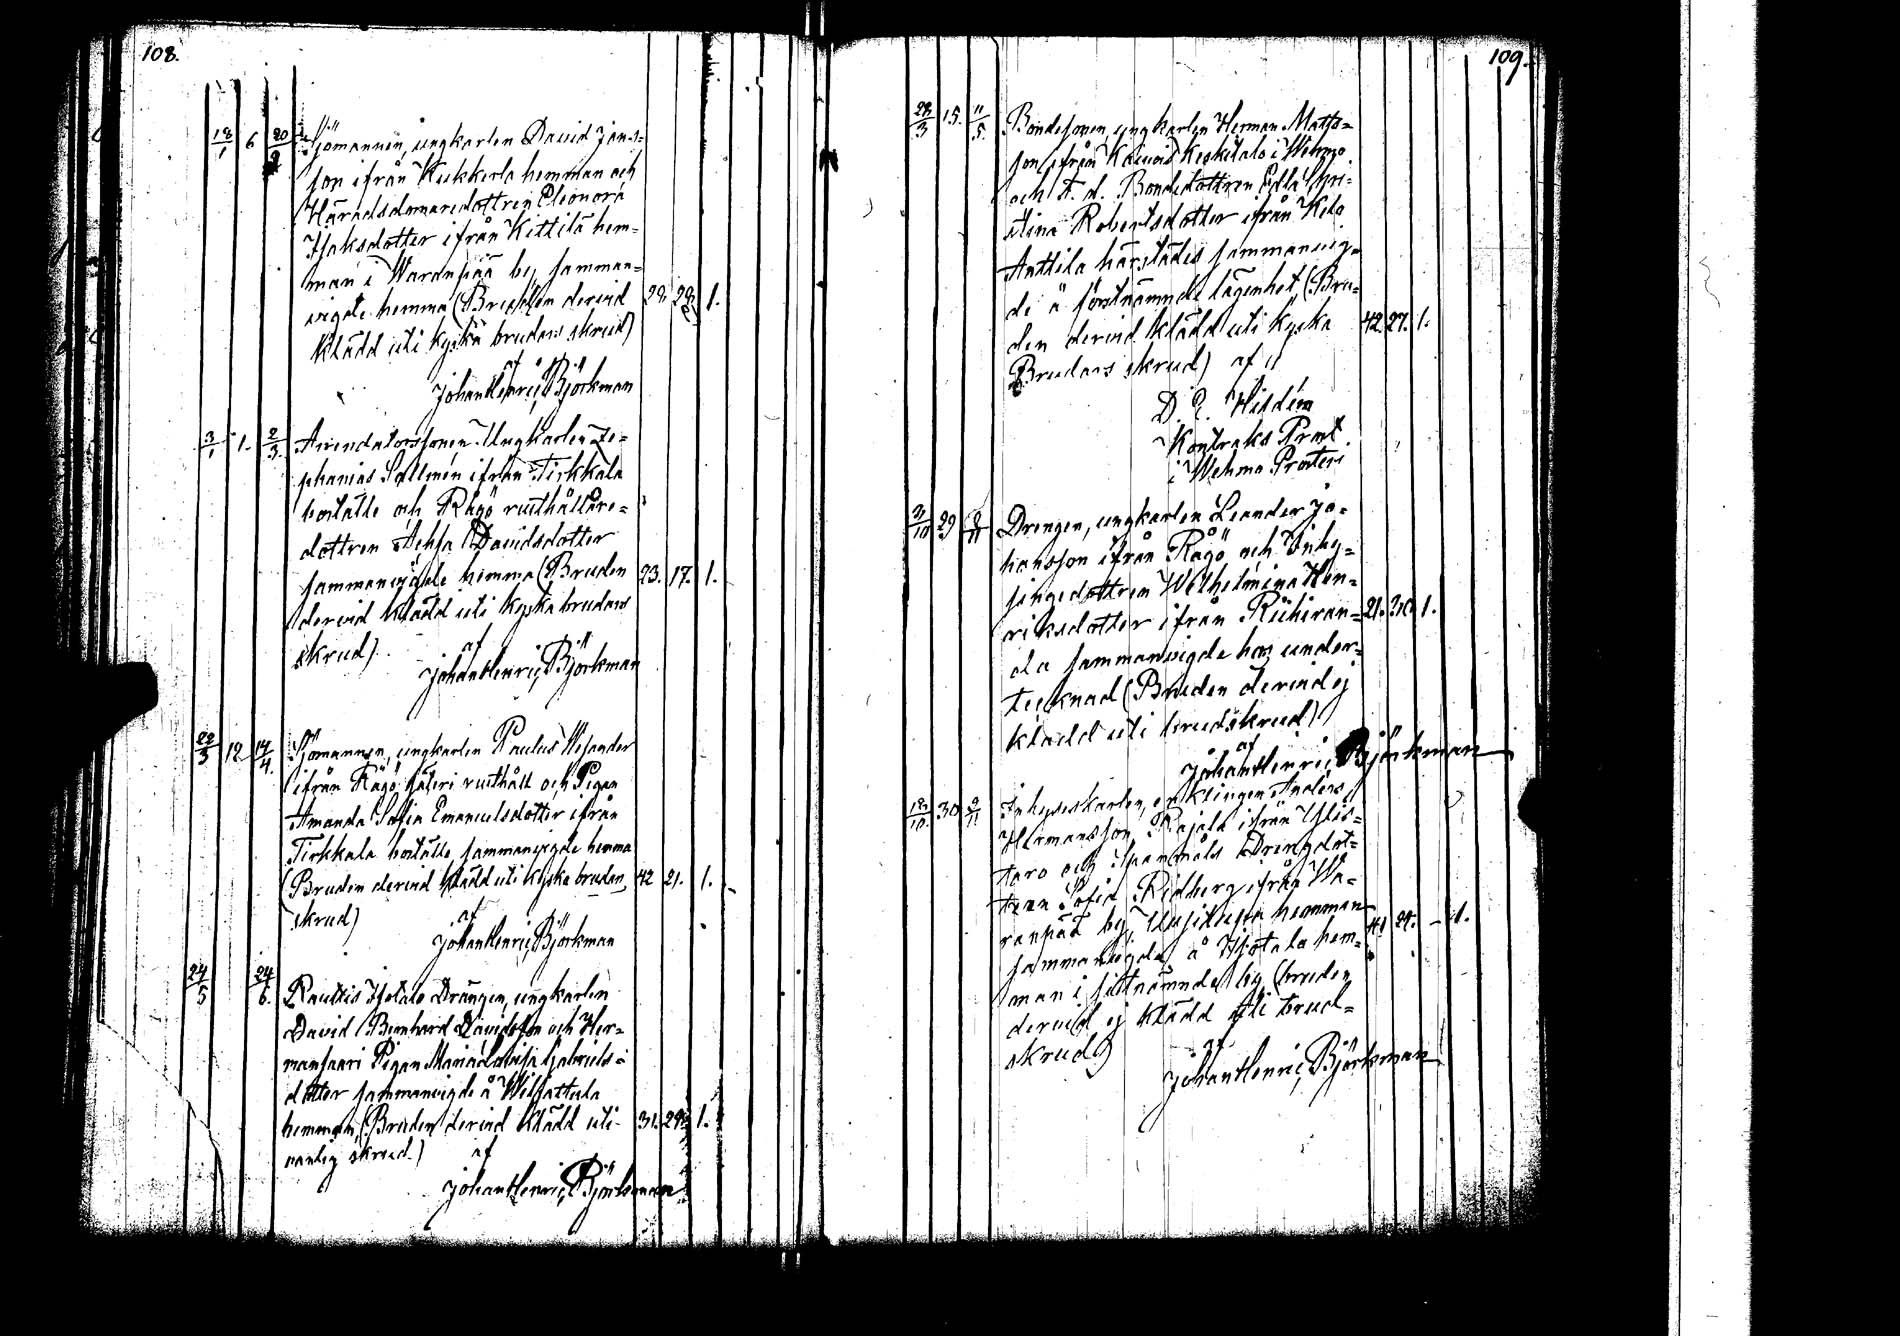 108.
18/1 6 20/2 Sjömannen, ungkarlen David Jans-
son ifrån Kukkerla hemman och
Häradsdomaredottren Eleonora
Isaksdotter ifrån Kittilä hem-
man i Waranpää by samman-
vigde hemma (Bruden dervid 28 28 1.
klädd uti kyska brudars skrud)
af
Johan Henric Björkman
3/1 1. 2/3. Arrendatorssonen Ungkarlen Ze-
phanias Sallmén ifrån Tirkkala
boställe och Rågö rusthållare-
dottren Achsa Davidsdotter
sammanvigde hemma (Bruden 23. 17. 1.
dervid klädd uti kyska brudars
skrud)
af
Johan Henric Björkman
22/3 12 14/4. Sjömannen, ungkarlen Paulus Wesander
ifrån Rågö Säteri rusthåll och Pigan
Amanda Sofia Emanuelsdotter ifrån
Tirkkala boställe sammanvigde hemma
(Bruden dervid klädd uti kyska brudars 42 21. 1.
skrud)
af
Johan Henric Björkman
24/5 24/6. Rautis Ylotalo Drängen, ungkarlen
David Bernhard Davidsson och Her-
mansaari Pigan Maria Lovisa Gabriels-
dotter sammanvigde å Wilsattula
hemman, (Bruden dervid klädd uti 31. 29 1.
vanlig skrud.) af
Johan Henric Björkman
109.
28/3 15. 11/5. Bondesonen, ungkarlen Herman Matts-
son ifrån Kaivois Keskitalo i Wehmo
och f. d. Bondedottren Edla Chri-
stina Robertsdotter ifrån Keto
Anttila härstädes sammanvig-
de å förstnämnde lägenhet (Bru-
den dervid klädd uti kyska 42 27. 1.
Brudars skrud) af
D. E. Hisdén
Kontrakts Prost
i Wehmo Prosteri
31/10 29 9/11 Drengen, ungkarlen Leander Jo-
hansson ifrån Rågö och Inhy-
singedottren Wilhelmina Hen-
riksdotter ifrån Riihiran- 21. 30 1.
da sammanvigde hos under-
tecknad (Bruden dervid ej
klädd uti brudskrud)
af
Johan Henric Björkman
18/10. 30 9/11 Inhyseskarlen, enklingen Anders
Hermansson Rajala ifrån Ylis-
taro och Spannmåls Drengdot-
tren Sofia Ridberg ifrån Wa-
ranpää by, Uusikupa hemman
sammanvigde å Isotalo hem- 41 24. – 1.
man i sistnämnde by (bruden
dervid ej klädd uti brud-
skrud)
af
Johan Henric Björkman